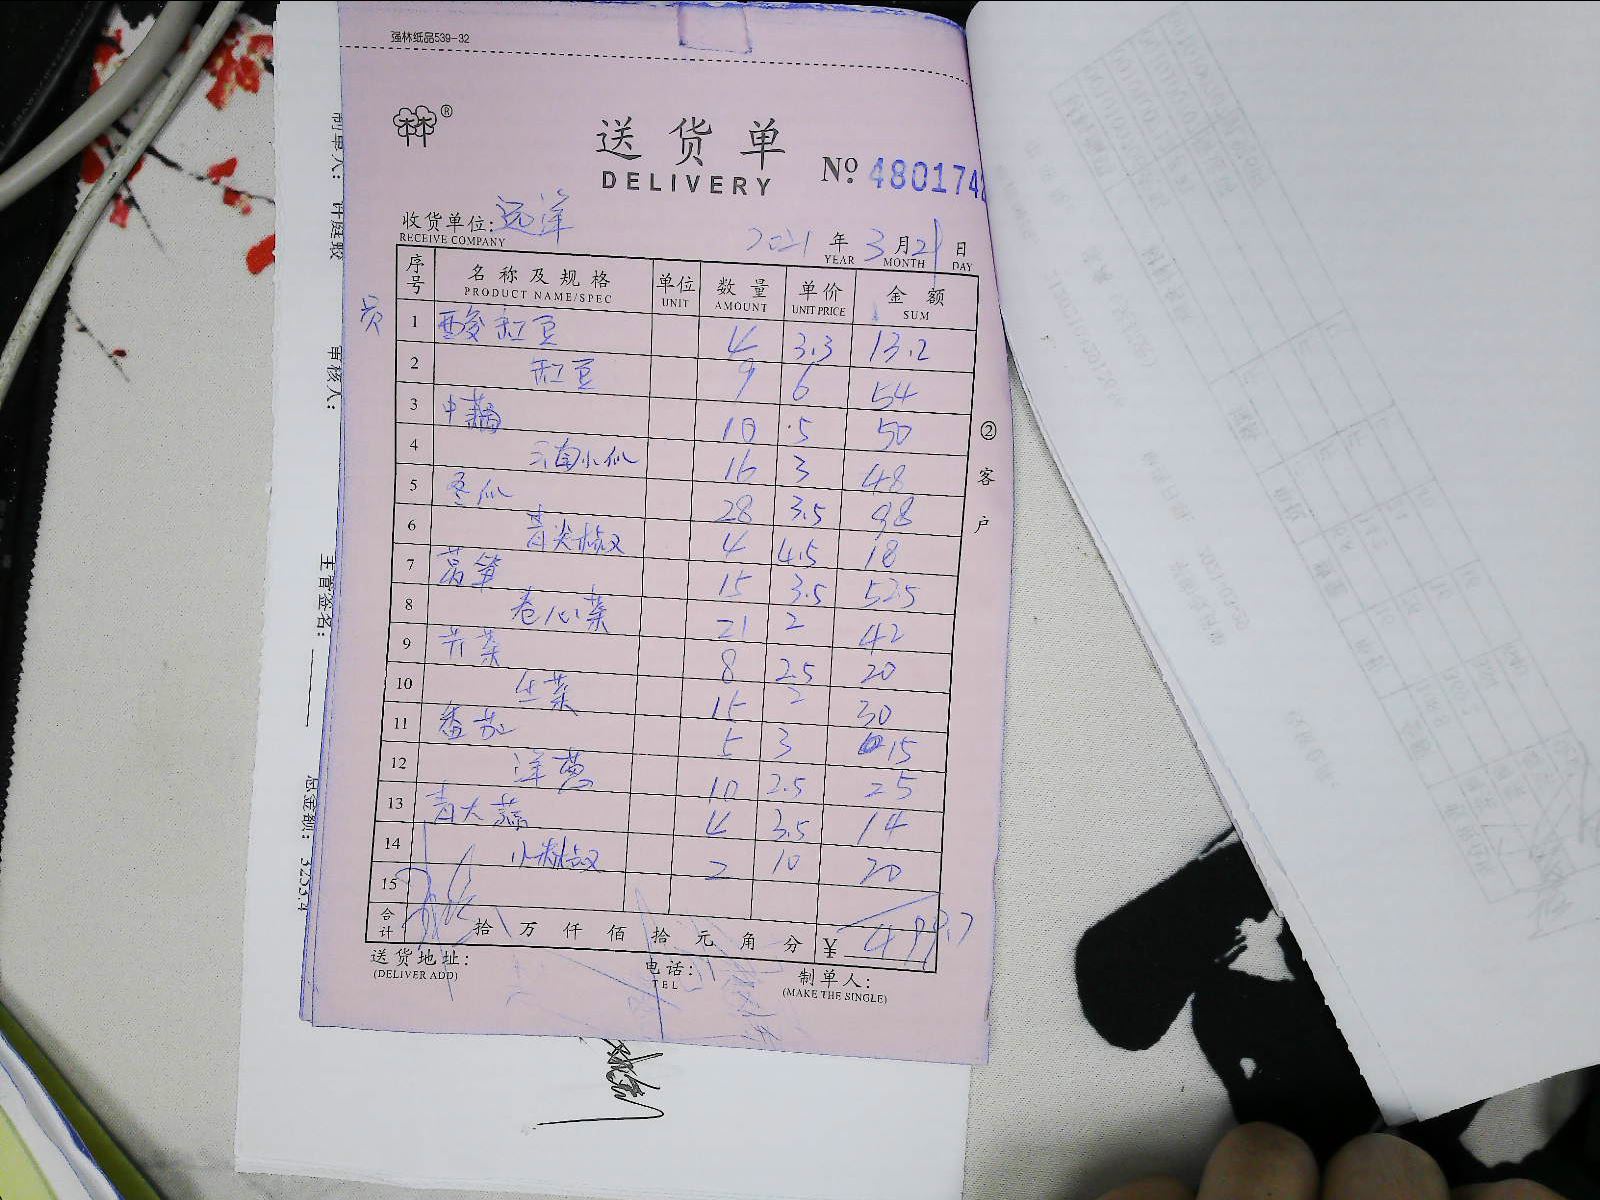 强林纸品539-32
林®
送货单
DELIVERY
Nº 480174
收货单位: 远洋
RECEIVE COMPANY
2021 年 3 月 21 日
YEAR MONTH DAY
序号 名称及规格 单位 数量 单价 金额
PRODUCT NAME/SPEC UNIT AMOUNT UNIT PRICE SUM
员
1 酸缸豆 4 3.3 13.2
2 缸豆 9 6 54
3 中藕 10 5 50
4 云南小瓜 16 3 48
5 冬瓜 28 3.5 98
6 青尖椒 4 4.5 18
7 莴笋 15 3.5 52.5
8 卷心菜 21 2 42
9 芹菜 8 2.5 20
10 生菜 15 2 30
11 番茄 5 3 15
12 洋葱 10 2.5 25
13 青大蒜 4 3.5 14
14 小米椒 2 10 20
15
合计 拾 万 仟 佰 拾 元 角 分 ¥ 499.7
送货地址:
(DELIVER ADD)
电话:
TEL
制单人:
(MAKE THE SINGLE)
② 客户
制单人: 许庭毅
审核人:
主管签名:
总金额: 3253.4